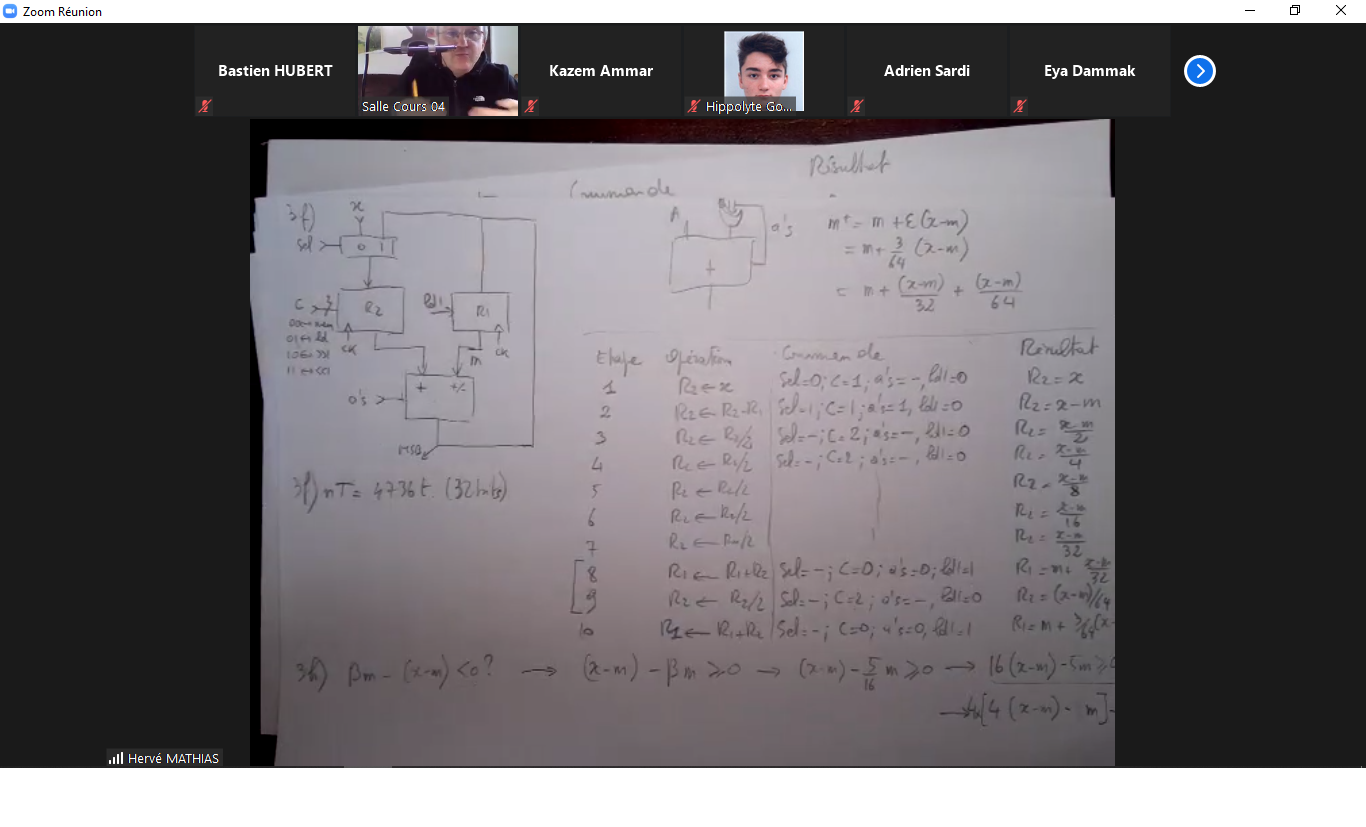 Zoom Réunion
Bastien HUBERT
Salle Cours 04
Kazem Ammar
Hippolyte Go...
Adrien Sardi
Eya Dammak
Résultat
Commande
3f)
x
Sel
0 1
C
3
R2
ld1
R1
00
01 ← ld
10 ← >>1
11 ← <<1
CK
CK
m
+ +/-
a's
MSB
A
a's
+
m⁺ = m + ε(x-m)
= m + 3/64 (x-m)
= m + (x-m)/32 + (x-m)/64
3f) nT = 4736t. (32 bits)
Etape Opération Commande Résultat
1 R2 ← x Sel=0; C=1; a's=-, ld1=0 R2 = x
2 R2 ← R2-R1 Sel=1; C=1; a's=1, ld1=0 R2 = x-m
3 R2 ← R2/2 Sel=-; C=2; a's=-, ld1=0 R2 = x-m/2
4 R2 ← R2/2 Sel=-; C=2; a's=-, ld1=0 R2 = x-m/4
5 R2 ← R2/2 R2 = x-m/8
6 R2 ← R2/2 R2 = x-m/16
7 R2 ← R2/2 R2 = x-m/32
8 R1 ← R1+R2 Sel=-; C=0; a's=0; ld1=1 R1 = m + x-m/32
9 R2 ← R2/2 Sel=-; C=2; a's=-, ld1=0 R2 = (x-m)/64
10 R1 ← R1+R2 Sel=-; C=0; a's=0, ld1=1 R1 = m + 3/64(x-
3h) βm - (x-m) <0? → (x-m) - βm ≥0 → (x-m) - 5/16 m ≥0 → 16(x-m)-5m ≥0
→ 4[4(x-m) - m]-
Hervé MATHIAS